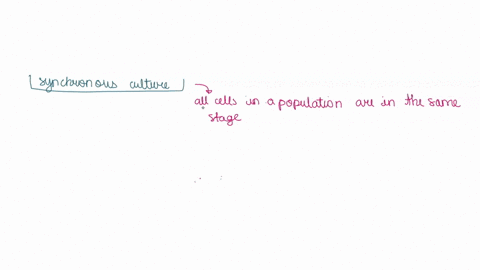 synchronous culture
all cells in a population are in the same
stage